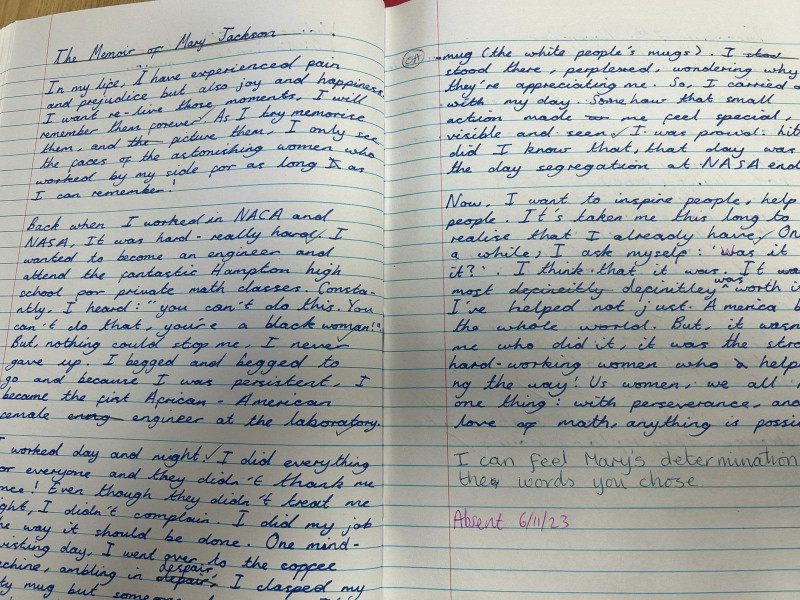 The Memoir of Mary Jackson
In my life, I have experienced pain
and prejudice but also joy and happiness.
I want re-live those moments, I will
remember them forever. As I try memorise
them, and the picture them, I only see
the faces of the astonishing women who
worked by my side for as long as
I can remember!
Back when I worked in NACA and
NASA, It was hard - really hard. I
wanted to become an engineer and
attend the fantastic Hampton high
school for private math classes. Consta-
ntly, I heard: "you can't do this. You
can't do that, you're a black woman!"
But, nothing could stop me, I never
gave up. I begged and begged to
go and because I was persistent, I
became the first African - American
female eng engineer at the laboratory.
I worked day and night. I did everything
for everyone and they didn't thank me
once! Even though they didn't treat me
ight, I didn't complain. I did my job
he way it should be done. One mind-
wisting day, I went over to the coffee
chine, ambling in depair, despair, I clasped my
ty mug but someone
OA
mug (the white people's mugs). I stow
stood there, perplexed, wondering why
they're appreciating me. So, I carried o
with my day. Somehow that small
action made me feel special,
visible and seen. I was prowd: litt
did I know that, that day was
the day segregation at NASA end
Now, I want to inspire people, help
people. It's taken me this long to
realise that I already have. On
a while, I ask myself: 'Was it
it?'. I think that it was. It wa
most deficitly definitley was worth i
I've helped not just America b
the whole world. But, it wasn
me who did it, it was the stro
hard-working women who help
ng the way! Us women, we all
one thing: with perseverance, and
love of math, anything is possi
I can feel Mary's determination
the words you chose
Absent 6/11/23